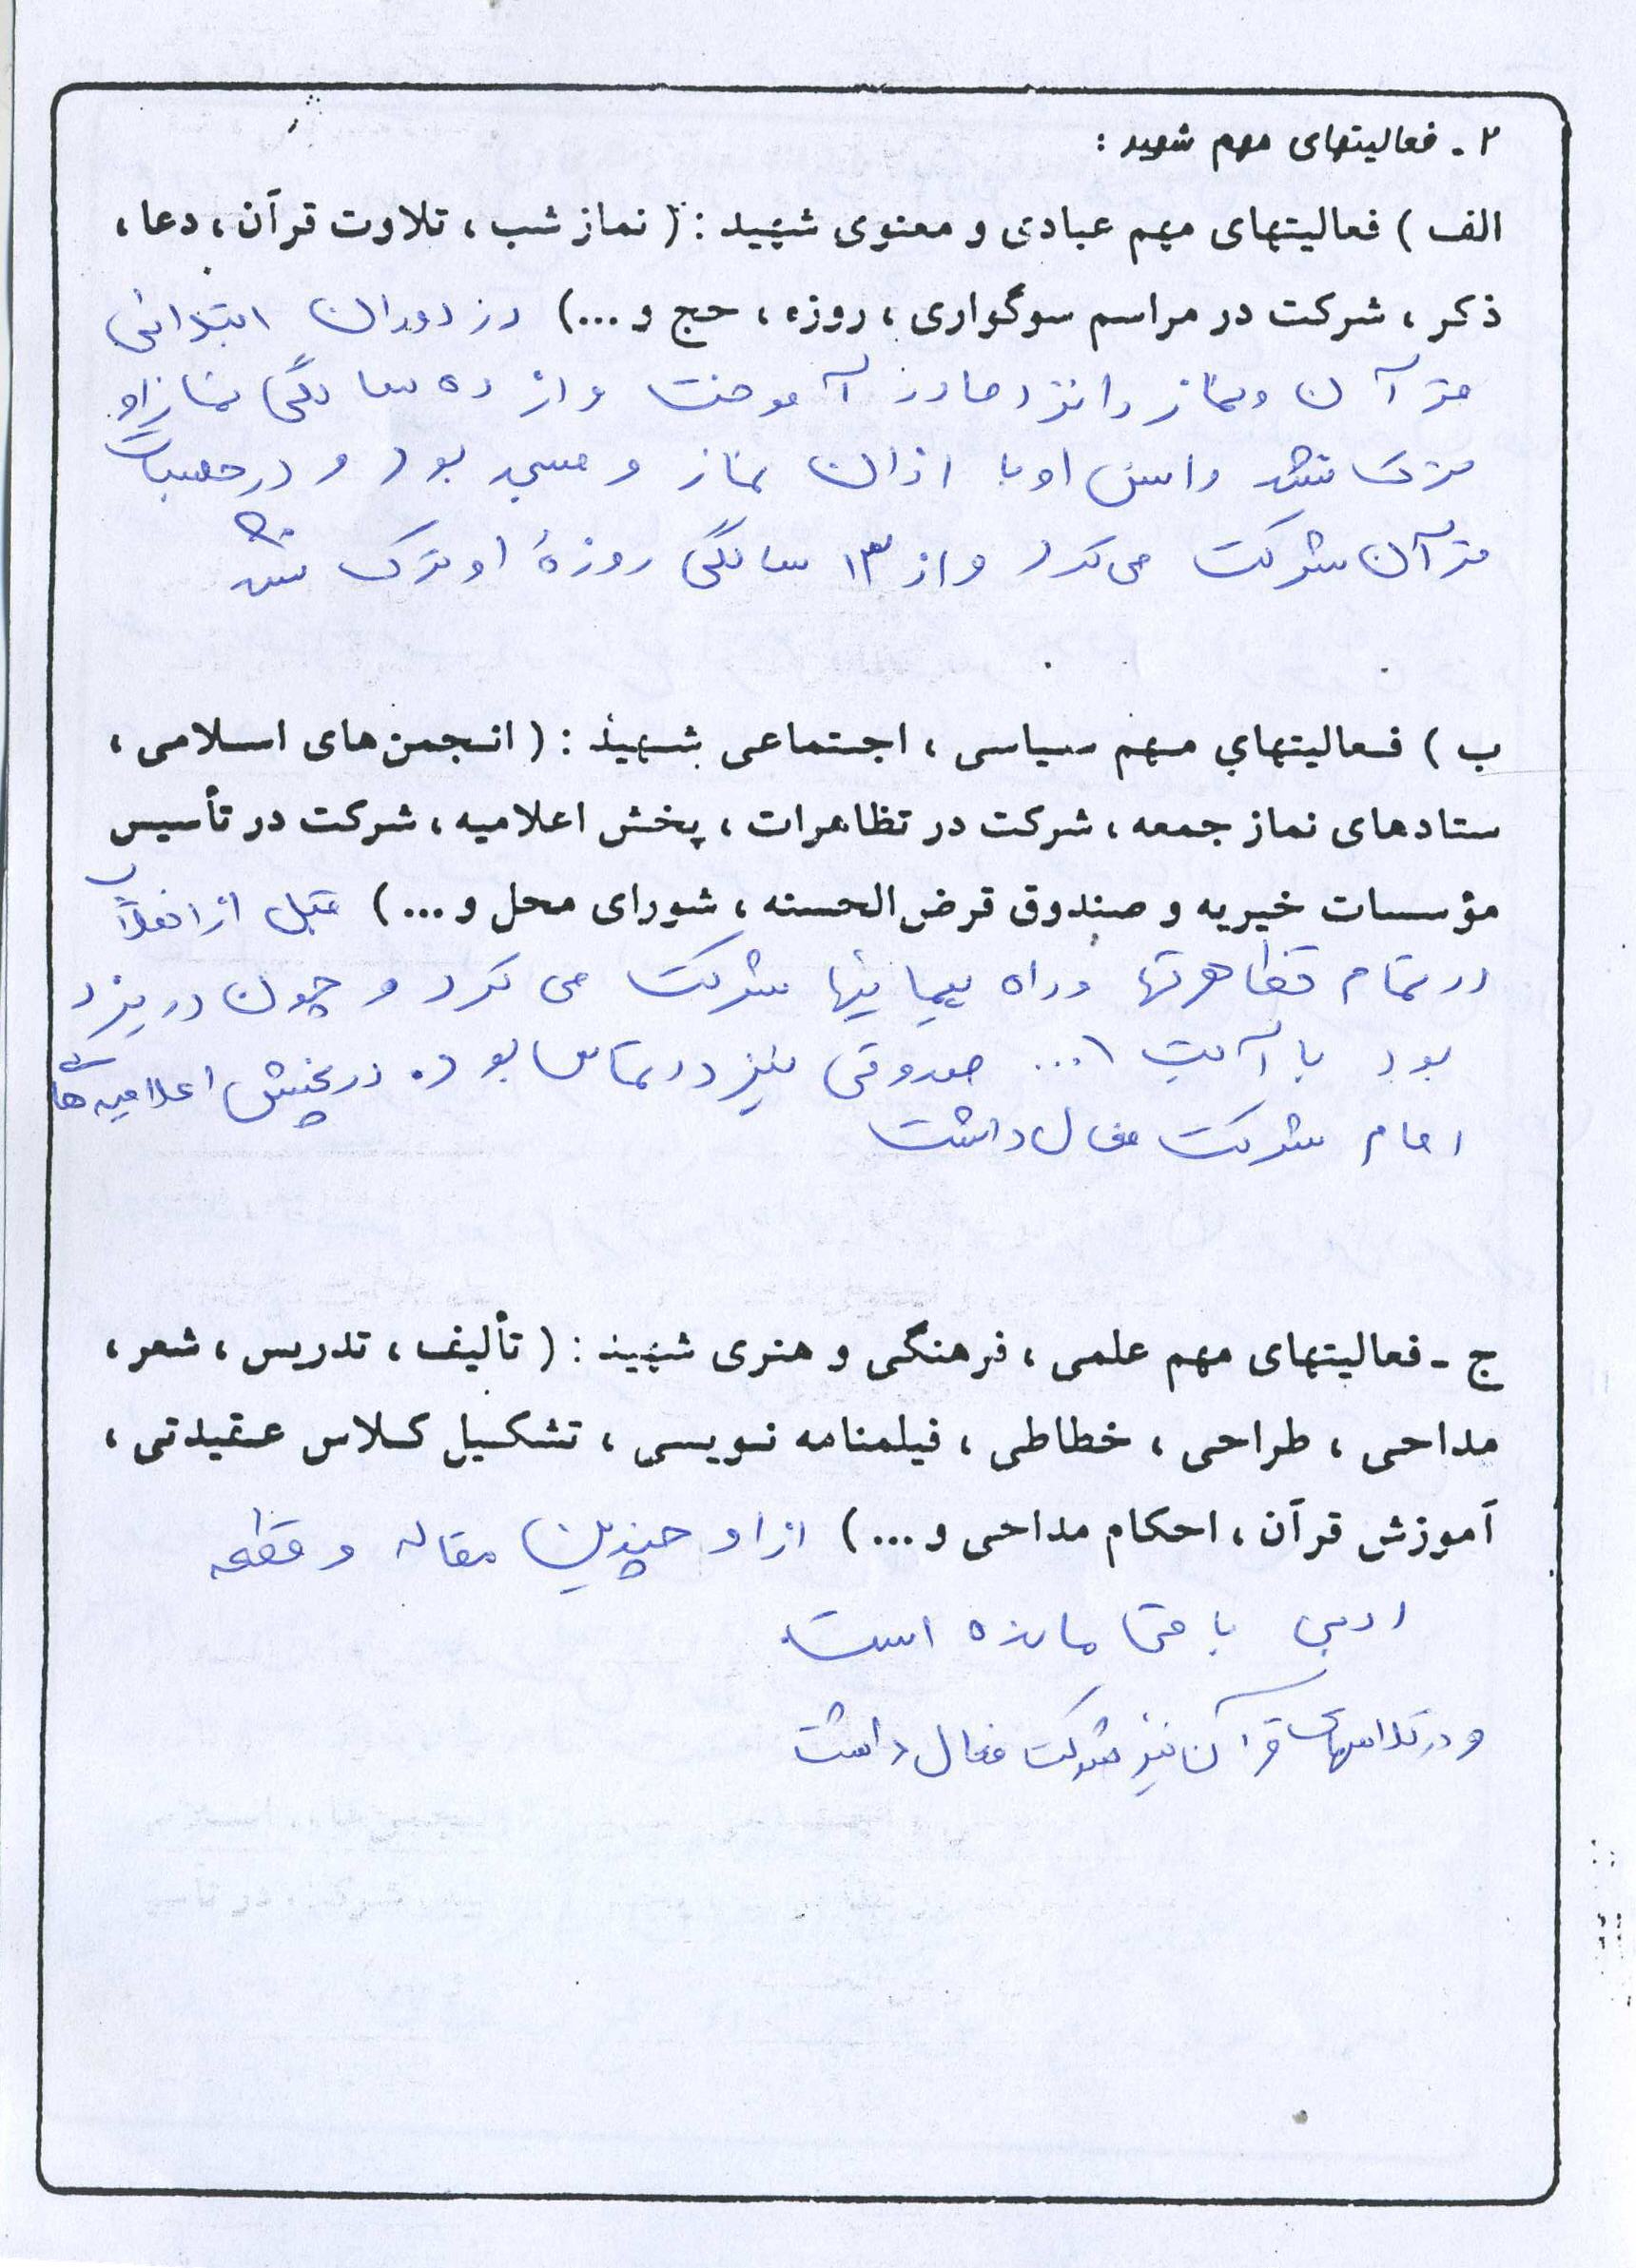 ۲ ـ فعالیتهای مهم شهید :
الف ) فعالیتهای مهم عبادی و معنوی شهید : ( نماز شب ، تلاوت قرآن ، دعا ،
ذکر ، شرکت در مراسم سوگواری ، روزه ، حج و ... ) در دوران ابتدائی
قرآن و نماز را نزد مادر آموخت و از ده سالگی نماز او
ترک نشد و انس او با اذان نماز و مسجد بود و در جلسات
قرآن شرکت می کرد و از ۱۳ سالگی روزهٔ او ترک نشد
ب ) فعالیتهای مهم سیاسی ، اجتماعی شهید : ( انجمن های اسلامی ،
ستادهای نماز جمعه ، شرکت در تظاهرات ، پخش اعلامیه ، شرکت در تأسیس
مؤسسات خیریه و صندوق قرض الحسنه ، شورای محل و ... ) قبل از انقلاب
در تمام تظاهرتها و راه پیمایيها شرکت می کرد و چون در یزد
بود با آیت ا... صدوقی نیز در تماس بود. در پخش اعلامیه های
امام شرکت فعال داشت
ج ـ فعالیتهای مهم علمی ، فرهنگی و هنری شهید : ( تألیف ، تدریس ، شعر ،
مداحی ، طراحی ، خطاطی ، فیلمنامه نویسی ، تشکیل کلاس عقیدتی ،
آموزش قرآن ، احکام مداحی و ... ) از او چندین مقاله و قطعه
ادبی باقی مانده است.
و در کلاسهای قرآن نیز شرکت فعال داشت